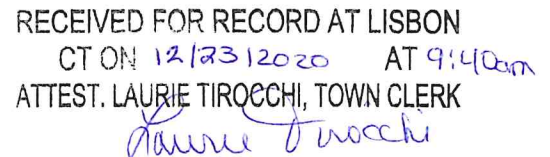 RECEIVED FOR RECORD AT LISBON
CT ON 12/23/2020 AT 9:40am
ATTEST. LAURIE TIROCCHI, TOWN CLERK
Laurie Tirocchi